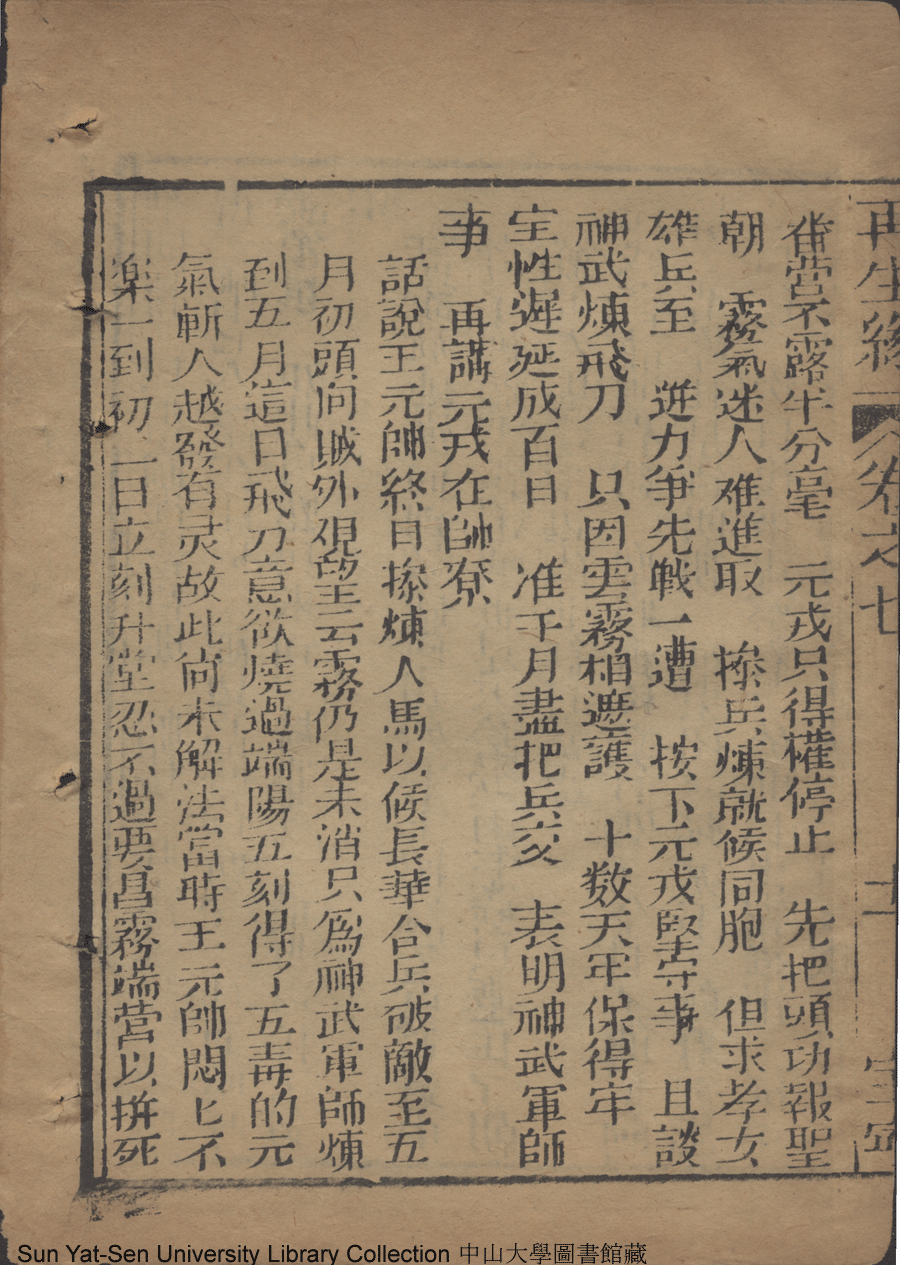 再生緣 卷之七
番營不露半分毫 元戎只得權停止 先把頭功報聖
朝 霧氣迷人难進取 操兵煉就候同胞 但求孝女
雄兵至 进力争先戰一遭 按下元戎堅守事 且談
神武煉飛刀 只因雲霧相遮護 十数天年保得牢
性遲延成百日 准于月盡把兵交 表明神武軍師
事 再講元戎在帥寮
話說王元帥終日操煉人馬以候長華合兵破敵至五
月初頭向城外覌望云霧仍是未消只為神武軍師煉
到五月這日飛刀意欲燒過端陽五刻得了五毒的元
氣斬人越發有灵故此尙未解法當時王元帥悶匕不
楽一到初二日立刻升堂忍不過要昌霧端營以拚死
Sun Yat-Sen University Library Collection 中山大學圖書館藏